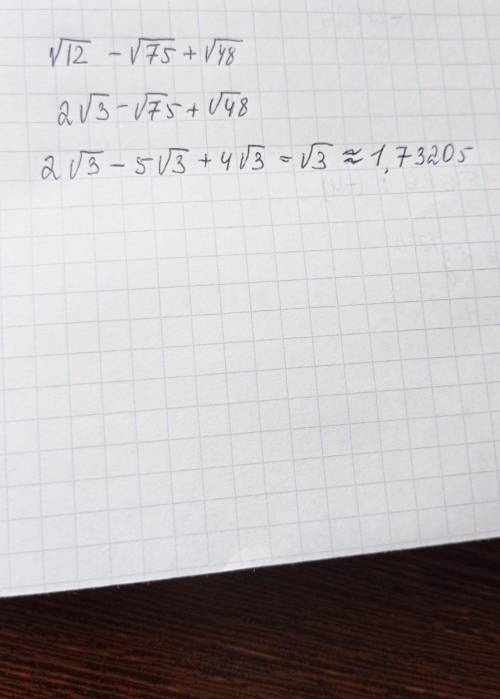 √12 - √75 + √48
2√3 - √75 + √48
2√3 - 5√3 + 4√3 = √3 ≈ 1,73205